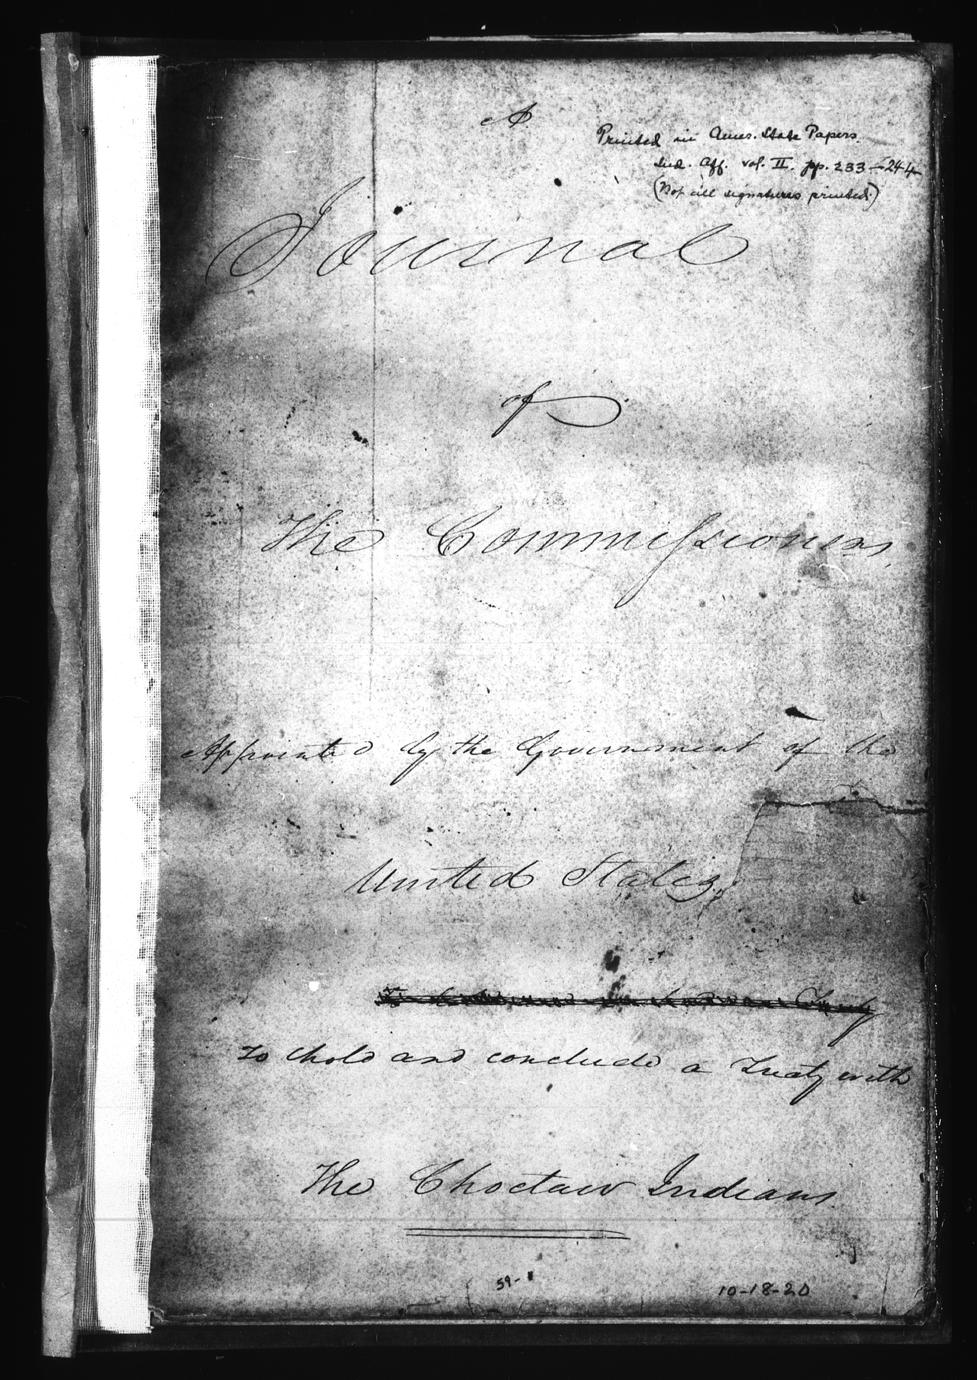 A
Printed in Amer. State Papers
Ind. Aff. vol. II. pp. 233-244
(Not all signatures printed.)
Journal
of
The Commissioners
Appointed by the Government of the
United States,
to hold and conclude a Treaty with
The Choctaw Indians
59-1
10-18-20